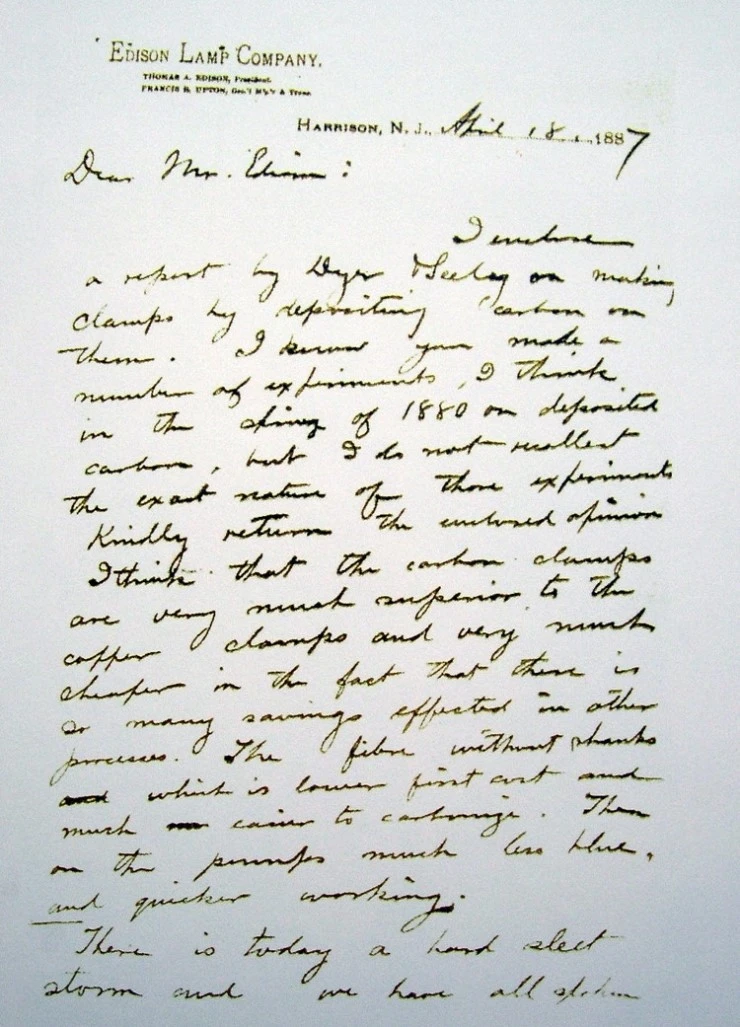 EDISON LAMP COMPANY.
THOMAS A. EDISON, President.
FRANCIS R. UPTON, Gen'l M'g'r & Treas.
HARRISON, N. J., April 18, 1887
Dear Mr. Edison:
I enclose
a report by Dyer & Seeley on making
clamps by depositing carbon on
them. I know you made a
number of experiments, I think
in the spring of 1880 on deposited
carbon, but I do not recollect
the exact nature of those experiments
Kindly return the enclosed opinion
I think that the carbon clamps
are very much superior to the
copper clamps and very much
cheaper in the fact that there is
so many savings effected in other
processes. The fibre without shanks
and which is lower first cost and
much easier to carbonize. Then
on the pumps much less blue,
and quicker working.
There is today a hard sleet
storm and we have all